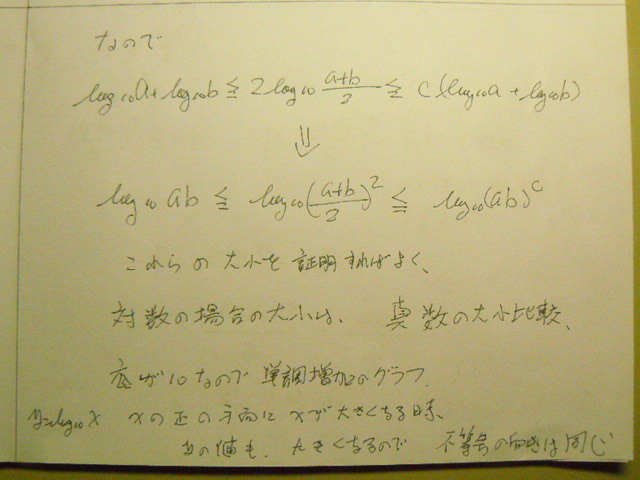 なので
log₁₀a+log₁₀b ≦ 2log₁₀ (a+b)/2 ≦ c(log₁₀a+log₁₀b)
⇓
log₁₀ab ≦ log₁₀((a+b)/2)² ≦ log₁₀(ab)^c
これらの大小を証明すればよく、
対数の場合の大小は、真数の大小比較、
底が10なので単調増加のグラフ.
y=log₁₀x xの正の方向にxが大きくなる時、
yの値も、大きくなるので 不等号の向きは同じ